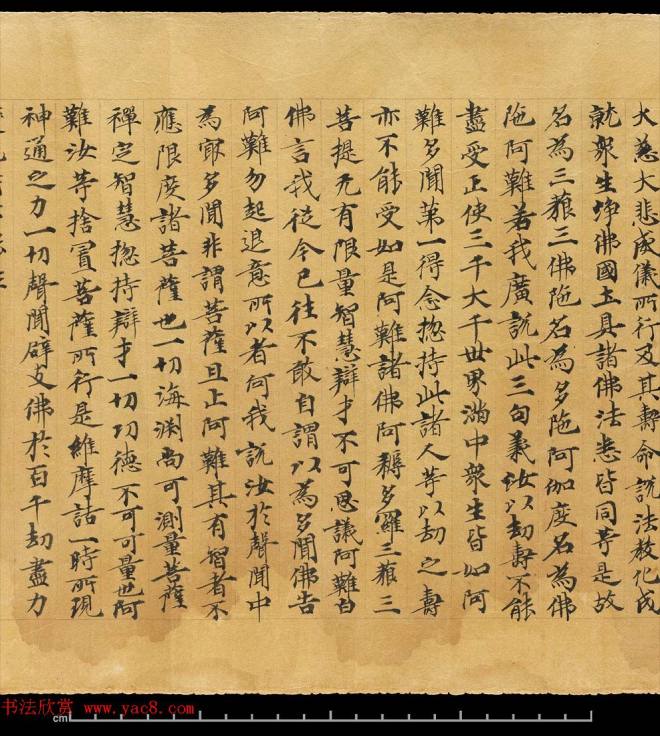 大慈大悲威儀所行及其壽命說法教化成
就衆生淨佛國土具諸佛法悉皆同等是故
名為三藐三佛陁名為多陁阿伽度名為佛
陁阿難若我廣說此三句義汝以劫壽不能
盡受正使三千大千世界滿中衆生皆如阿
難多聞第一得念揔持此諸人等以劫之壽
亦不能受如是阿難諸佛阿耨多羅三藐三
菩提无有限量智慧辯才不可思議阿難白
佛言我從今已往不敢自謂以為多聞佛告
阿難勿起退意所以者何我說汝於聲聞中
為冣多聞非謂菩薩且止阿難其有智者不
應限度諸菩薩也一切海渊尚可測量菩薩
禪定智慧揔持辯才一切功德不可可量也阿
難汝等捨置菩薩所行是維摩詰一時所現
神通之力一切聲聞辟支佛於百千劫盡力
书法欣赏 www.yac8.com
cm